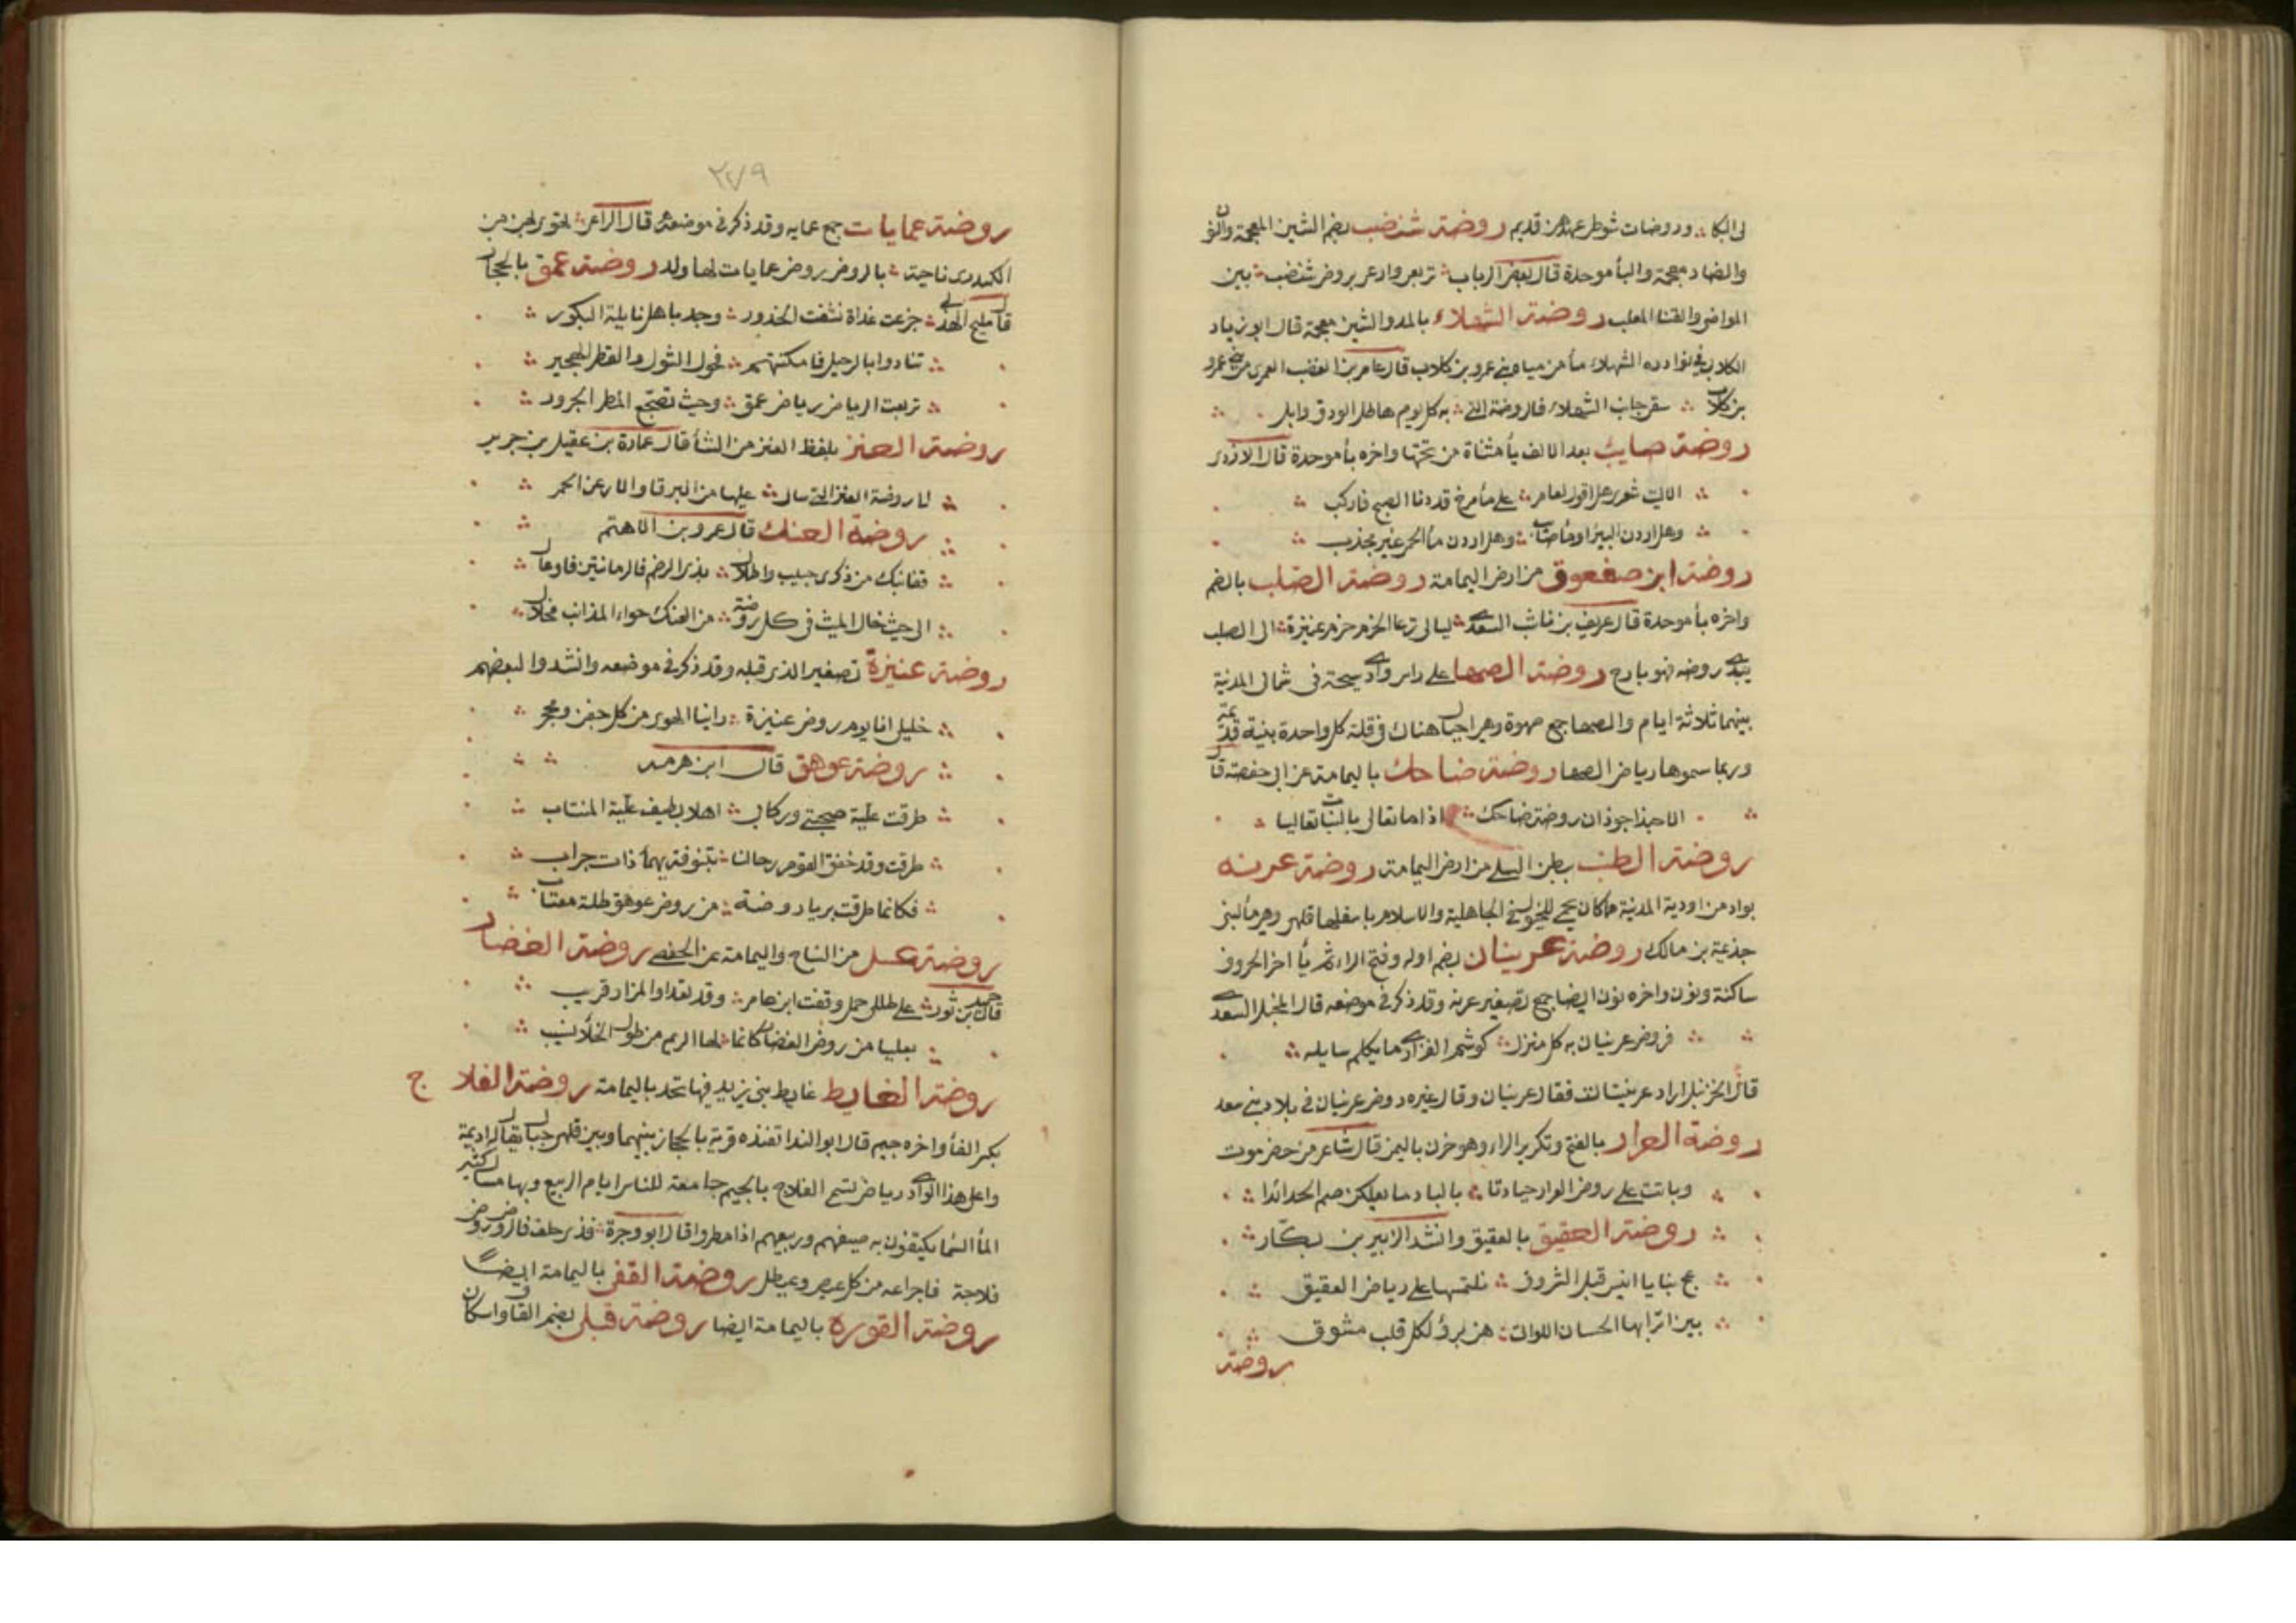 لي البكاء ؞ وروضات شوطى عهدهن قديم روضة شنضب بضم الشين المعجمة والنون
والضاد معجمة والباء موحدة قال بعض الرباب ؞ تربعر وادعر بروض شنضب ؞ بين
المواضى والقنا المعلب روضة الشهلاء بالمد والشين معجمة قال ابو زياد
الكلابي في نوادره الشهلاء ماء من مياه بني عمرو بن كلاب قال عامر بن العضب العمري من بني عمرو
بن كلاب ؞ سقى جانب الشهلاء فالروضة التي ؞ به كل يوم هاطل الودق وابل
روضة صايب بعد الالف ياء مثناة من تحتها واخره باء موحدة قال الازدي
الا ليت شعري هل اقول لعامر ؞ على ماء مرخ قد دنا الصبح فاركب
وهل اردن البير او ماء صايب ؞ وهل اردن ماء الحمر غير مجذب
روضة ابن صفعوق من ارض اليمامة روضة الصلب بالضم
واخره باء موحدة قال عريف بن ناشب السعدي ؞ ليالي ترعا الحزم حزم عنيزة ؞ الى الصلب
يبدي روضه فهو بارح روضة الصها على راس وادي سيحة في شمالي المدينة
بينهما ثلاثة ايام والصها جمع صهوة وهي اجبال هناك في قلة كل واحدة بنية قديمة
وربما سموها رياض الصها روضة ضاحك باليمامة عن ابي حفصة قال
الا حبذا حوذان روضة ضاحك ؞ اذا ما تغالى بالنبات تغاليا
روضة الطنب ببطن السلي من ارض اليمامة روضة عرنه
بواد من اودية المدينة مما كان يحمي للخيول في الجاهلية والاسلام باسفلها قلهى وهي ماء لبني
جذيمة بن مالك روضة عرينات بضم اوله وفتح الراء ثم ياء اخر الحروف
ساكنة ونون واخره نون ايضا جمع تصغير عرنه وقد ذكر في موضعه قال المخبل السعدي
فروض عرينان به كل منزل ؞ كوشم الفزاري ما يكلم سايله
قال الخزنبل اراد عرينات فقال عرينان وقال غيره روض عرينان في بلاد بني سعد
روضة العرار بالفتح وتكرير الراء وهو حزن باليمن قال شاعر من حضرموت
وباتت على روض العرار جيادنا ؞ بالبادها يعلكن صم الحدائدا
روضة العقيق بالعقيق وانشد الزبير بن بكّار
عج بنا يا انيس قبل الشروق ؞ نلتمسها على رياض العقيق
بين اترابها الحسان اللواتي ؞ هن برؤ لكل قلب مشوق
روضة
٣٧٩
روضة عمايات جمع عمايه وقد ذكر في موضعه قال الراعي ؞ لهوى لهن من
الكندرى ناحية ؞ بالروض روض عمايات لها ولد روضة عمق بالحجاز
قال مليح الهذلي ؞ جزعت غداة نشفت الخذور ؞ وجد باهل نايلة البكور
تنادوا بالرحيل فامكنتهم ؞ فحول الشول والقطم الهجير
تربعت الرياض رياض عمق ؞ وحيث تضجع المطر الجرور
روضة العنز بلفظ العنز من الشاء قال عمارة بن عقيل بن جرير
لنا روضة العنز التي سال ؞ عليها من البرقا والارعن الحمر
روضة العنك قال عمرو بن الاهتم
قفا نبك من ذكرى حبيب واطلال ؞ بذي الرضم فالرمانتين فاوعال
الى حيث حال الميث في كل روضة ؞ من العنك حواء المذانب محلال
روضة عنيزة تصغير الذي قبله وقد ذكر في موضعه وانشدوا لبعضهم
خليلي انا يوم روض عنيزة ؞ راينا الهوى من كل جفن ومحجر
روضة عوهق قال ابن هرمه
طرقت علية صحبتي وركابي ؞ اهلا بطيف علية المنتاب
طرقت وقد خفق القوم رحالنا ؞ بتنوفة يهماء ذات خراب
فكانما طرقت بريا روضة ؞ من روض عوهق طلة معشاب
روضة عسل من النباج واليمامة عن الحفصي روضة الغضار
قال حميد بن ثور ؞ على طللي جمل وقفت ابن عامر ؞ وقد لقدا والمزار قريب
بعليا من روض الغضار كانما ؞ لها الريم من طول الخلاء نسيب
روضة الغايط غايط بني يزيد فيها نخل باليمامة روضة الفلاج
بكسر الفاء واخره جيم قال ابو الندا تغذه قرية بالحجاز بينهما وبين قلهى جبال يقال له اديمة
واعلى هذا الوادي رياض تسمى الفلاج بالجيم جامعة للناس ايام الربيع وبها مسال كثير
الماء السماء يكتفون به صيفهم وربيعهم اذا مطروا قال ابو وجزة ؞ فذي حلف فالروض روض
فلاجة فاجراعه من كل عيص وغيطل روضة القفي باليمامة ايضاً
روضة القوره باليمامة ايضا روضة قبلى بضم القاف واسكان